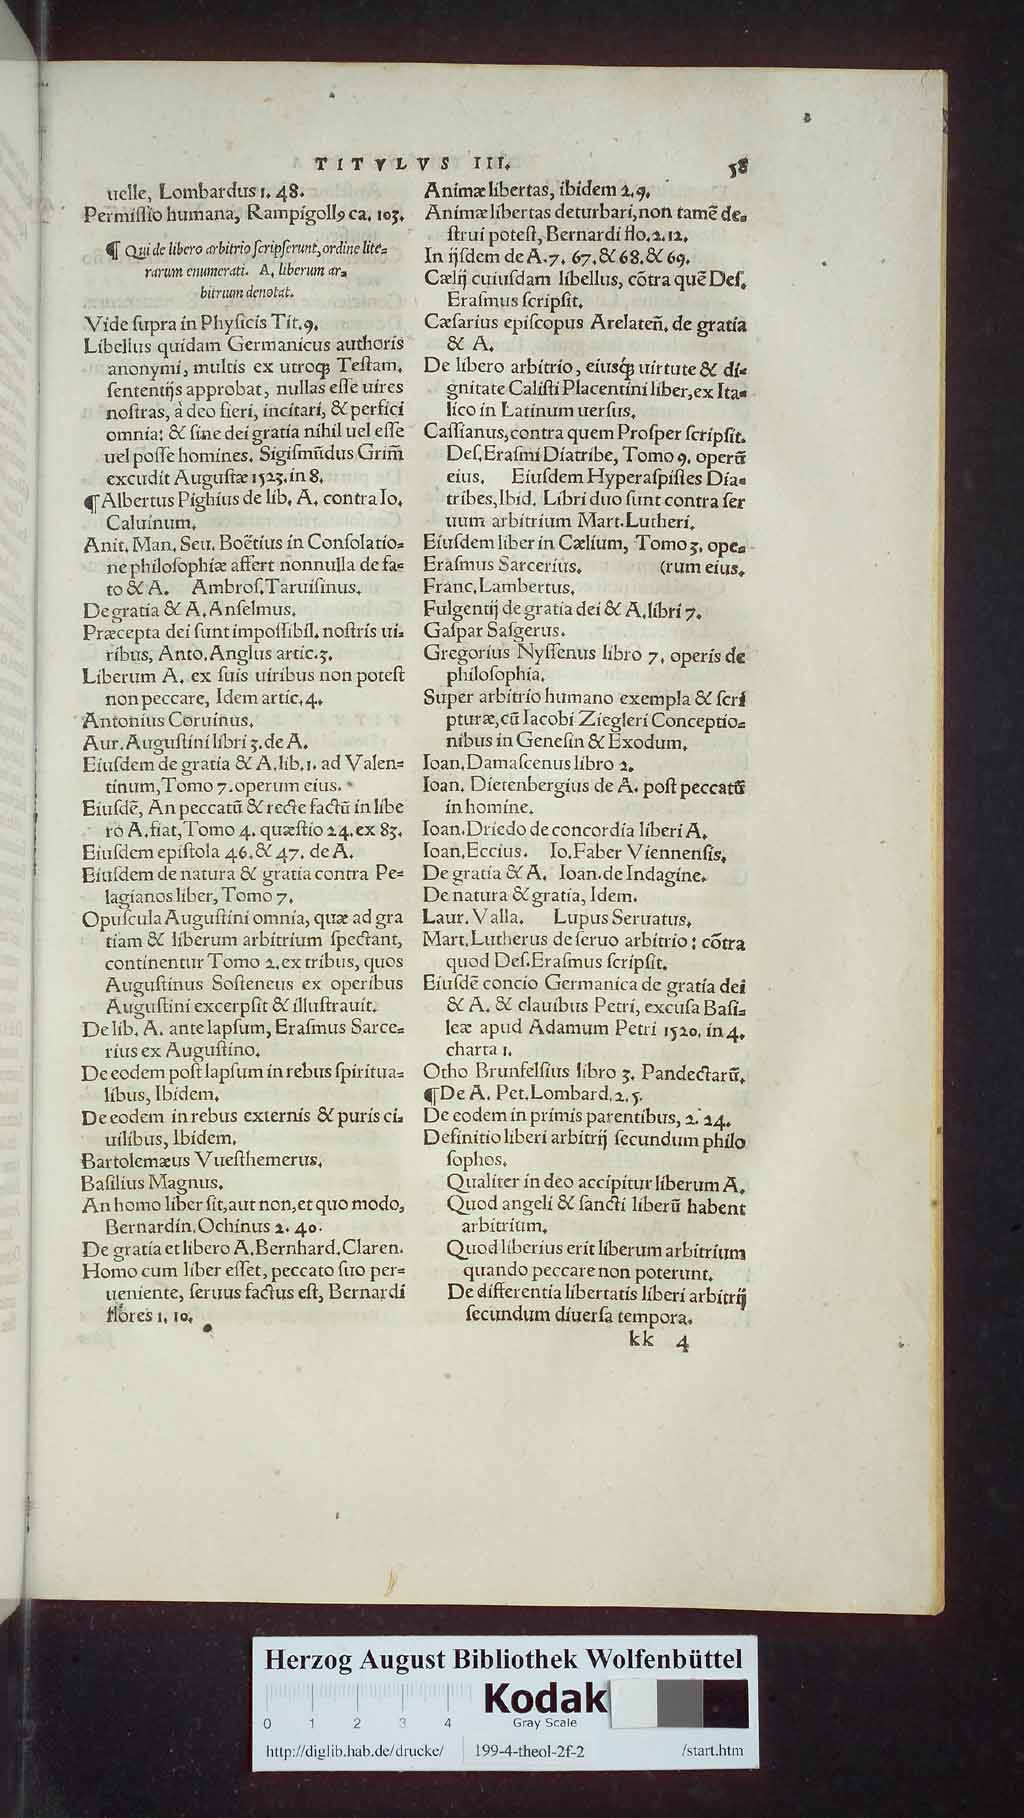 TITVLVS III.
58
uelle, Lombardus 1. 48.
Permißio humana, Rampigollꝯ ca. 103.
¶ Qui de libero arbitrio ſcripſerunt, ordine lite=
rarum enumerati. A. liberum ar=
bitrium denotat.
Vide ſupra in Phyſicis Tit.9.
Libellus quidam Germanicus authoris
anonymi, multis ex utroqꝫ Teſtam.
ſententijs approbat, nullas eſſe uires
noſtras, à deo fieri, incitari, & perfici
omnia: & ſine dei gratia nihil uel eſſe
uel poſſe homines. Sigiſmūdus Grim̄
excudit Auguſtæ 1523. in 8.
¶ Albertus Pighius de lib. A. contra Io.
Caluinum.
Anit. Man. Seu. Boëtius in Conſolatio=
ne philoſophiæ affert nonnulla de fa=
to & A. Ambroſ. Taruiſinus.
De gratia & A. Anſelmus.
Præcepta dei ſunt impoſſibil. noſtris ui=
ribus, Anto. Anglus artic.3.
Liberum A. ex ſuis uiribus non poteſt
non peccare, Idem artic.4.
Antonius Coruinus.
Aur. Auguſtini libri 3. de A.
Eiuſdem de gratia & A. lib.1. ad Valen=
tinum, Tomo 7. operum eius.
Eiuſdē, An peccatū & recte factū in libe
ro A. fiat, Tomo 4. quæſtio 24. ex 83.
Eiuſdem epiſtola 46. & 47. de A.
Eiuſdem de natura & gratia contra Pe=
lagianos liber, Tomo 7.
Opuſcula Auguſtini omnia, quæ ad gra
tiam & liberum arbitrium ſpectant,
continentur Tomo 2. ex tribus, quos
Auguſtinus Soſteneus ex operibus
Auguſtini excerpſit & illuſtrauit.
De lib. A. ante lapſum, Eraſmus Sarce=
rius ex Auguſtino.
De eodem poſt lapſum in rebus ſpiritua=
libus, Ibidem.
De eodem in rebus externis & puris ci=
uilibus, Ibidem.
Bartolemæus Vueſthemerus.
Baſilius Magnus.
An homo liber ſit, aut non, et quo modo,
Bernardin. Ochinus 2. 40.
De gratia et libero A. Bernhard. Claren.
Homo cum liber eſſet, peccato ſuo per=
ueniente, ſeruus factus eſt, Bernardi
flores 1. 10.
Animæ libertas, ibidem 2.9.
Animæ libertas deturbari, non tamē de=
ſtrui poteſt, Bernardi flo.2.12.
In ijſdem de A.7. 67. & 68. & 69.
Cælij cuiuſdam libellus, cōtra quē Deſ.
Eraſmus ſcripſit.
Cæſarius epiſcopus Arelateñ. de gratia
& A.
De libero arbitrio, eiusqꝫ uirtute & di=
gnitate Caliſti Placentini liber, ex Ita=
lico in Latinum uerſus.
Caſſianus, contra quem Proſper ſcripſit.
Deſ. Eraſmi Diatribe, Tomo 9. operū
eius. Eiuſdem Hyperaſpiſtes Dia=
tribes, Ibid. Libri duo ſunt contra ſer
uum arbitrium Mart. Lutheri.
Eiuſdem liber in Cælium, Tomo 3. ope=
Eraſmus Sarcerius. (rum eius.
Franc. Lambertus.
Fulgentij de gratia dei & A. libri 7.
Gaſpar Saſgerus.
Gregorius Nyſſenus libro 7. operis de
philoſophia.
Super arbitrio humano exempla & ſcri
pturæ, cū Iacobi Ziegleri Conceptio=
nibus in Geneſin & Exodum.
Ioan. Damaſcenus libro 2.
Ioan. Dietenbergius de A. poſt peccatū
in homine.
Ioan. Driedo de concordia liberi A.
Ioan. Eccius. Io. Faber Viennenſis.
De gratia & A. Ioan. de Indagine.
De natura & gratia, Idem.
Laur. Valla. Lupus Seruatus.
Mart. Lutherus de ſeruo arbitrio: cōtra
quod Deſ. Eraſmus ſcripſit.
Eiuſdē concio Germanica de gratia dei
& A. & clauibus Petri, excuſa Baſi=
leæ apud Adamum Petri 1520. in 4.
charta 1.
Otho Brunfelſius libro 3. Pandectarū.
¶ De A. Pet. Lombard.2.5.
De eodem in primis parentibus, 2. 24.
Definitio liberi arbitrij ſecundum philo
ſophos.
Qualiter in deo accipitur liberum A.
Quod angeli & ſancti liberū habent
arbitrium.
Quod liberius erit liberum arbitrium
quando peccare non poterunt.
De differentia libertatis liberi arbitrij
ſecundum diuerſa tempora.
kk 4
Herzog August Bibliothek Wolfenbüttel
Kodak
Gray Scale
0 1 2 3 4
http://diglib.hab.de/drucke/ 199-4-theol-2f-2 /start.htm